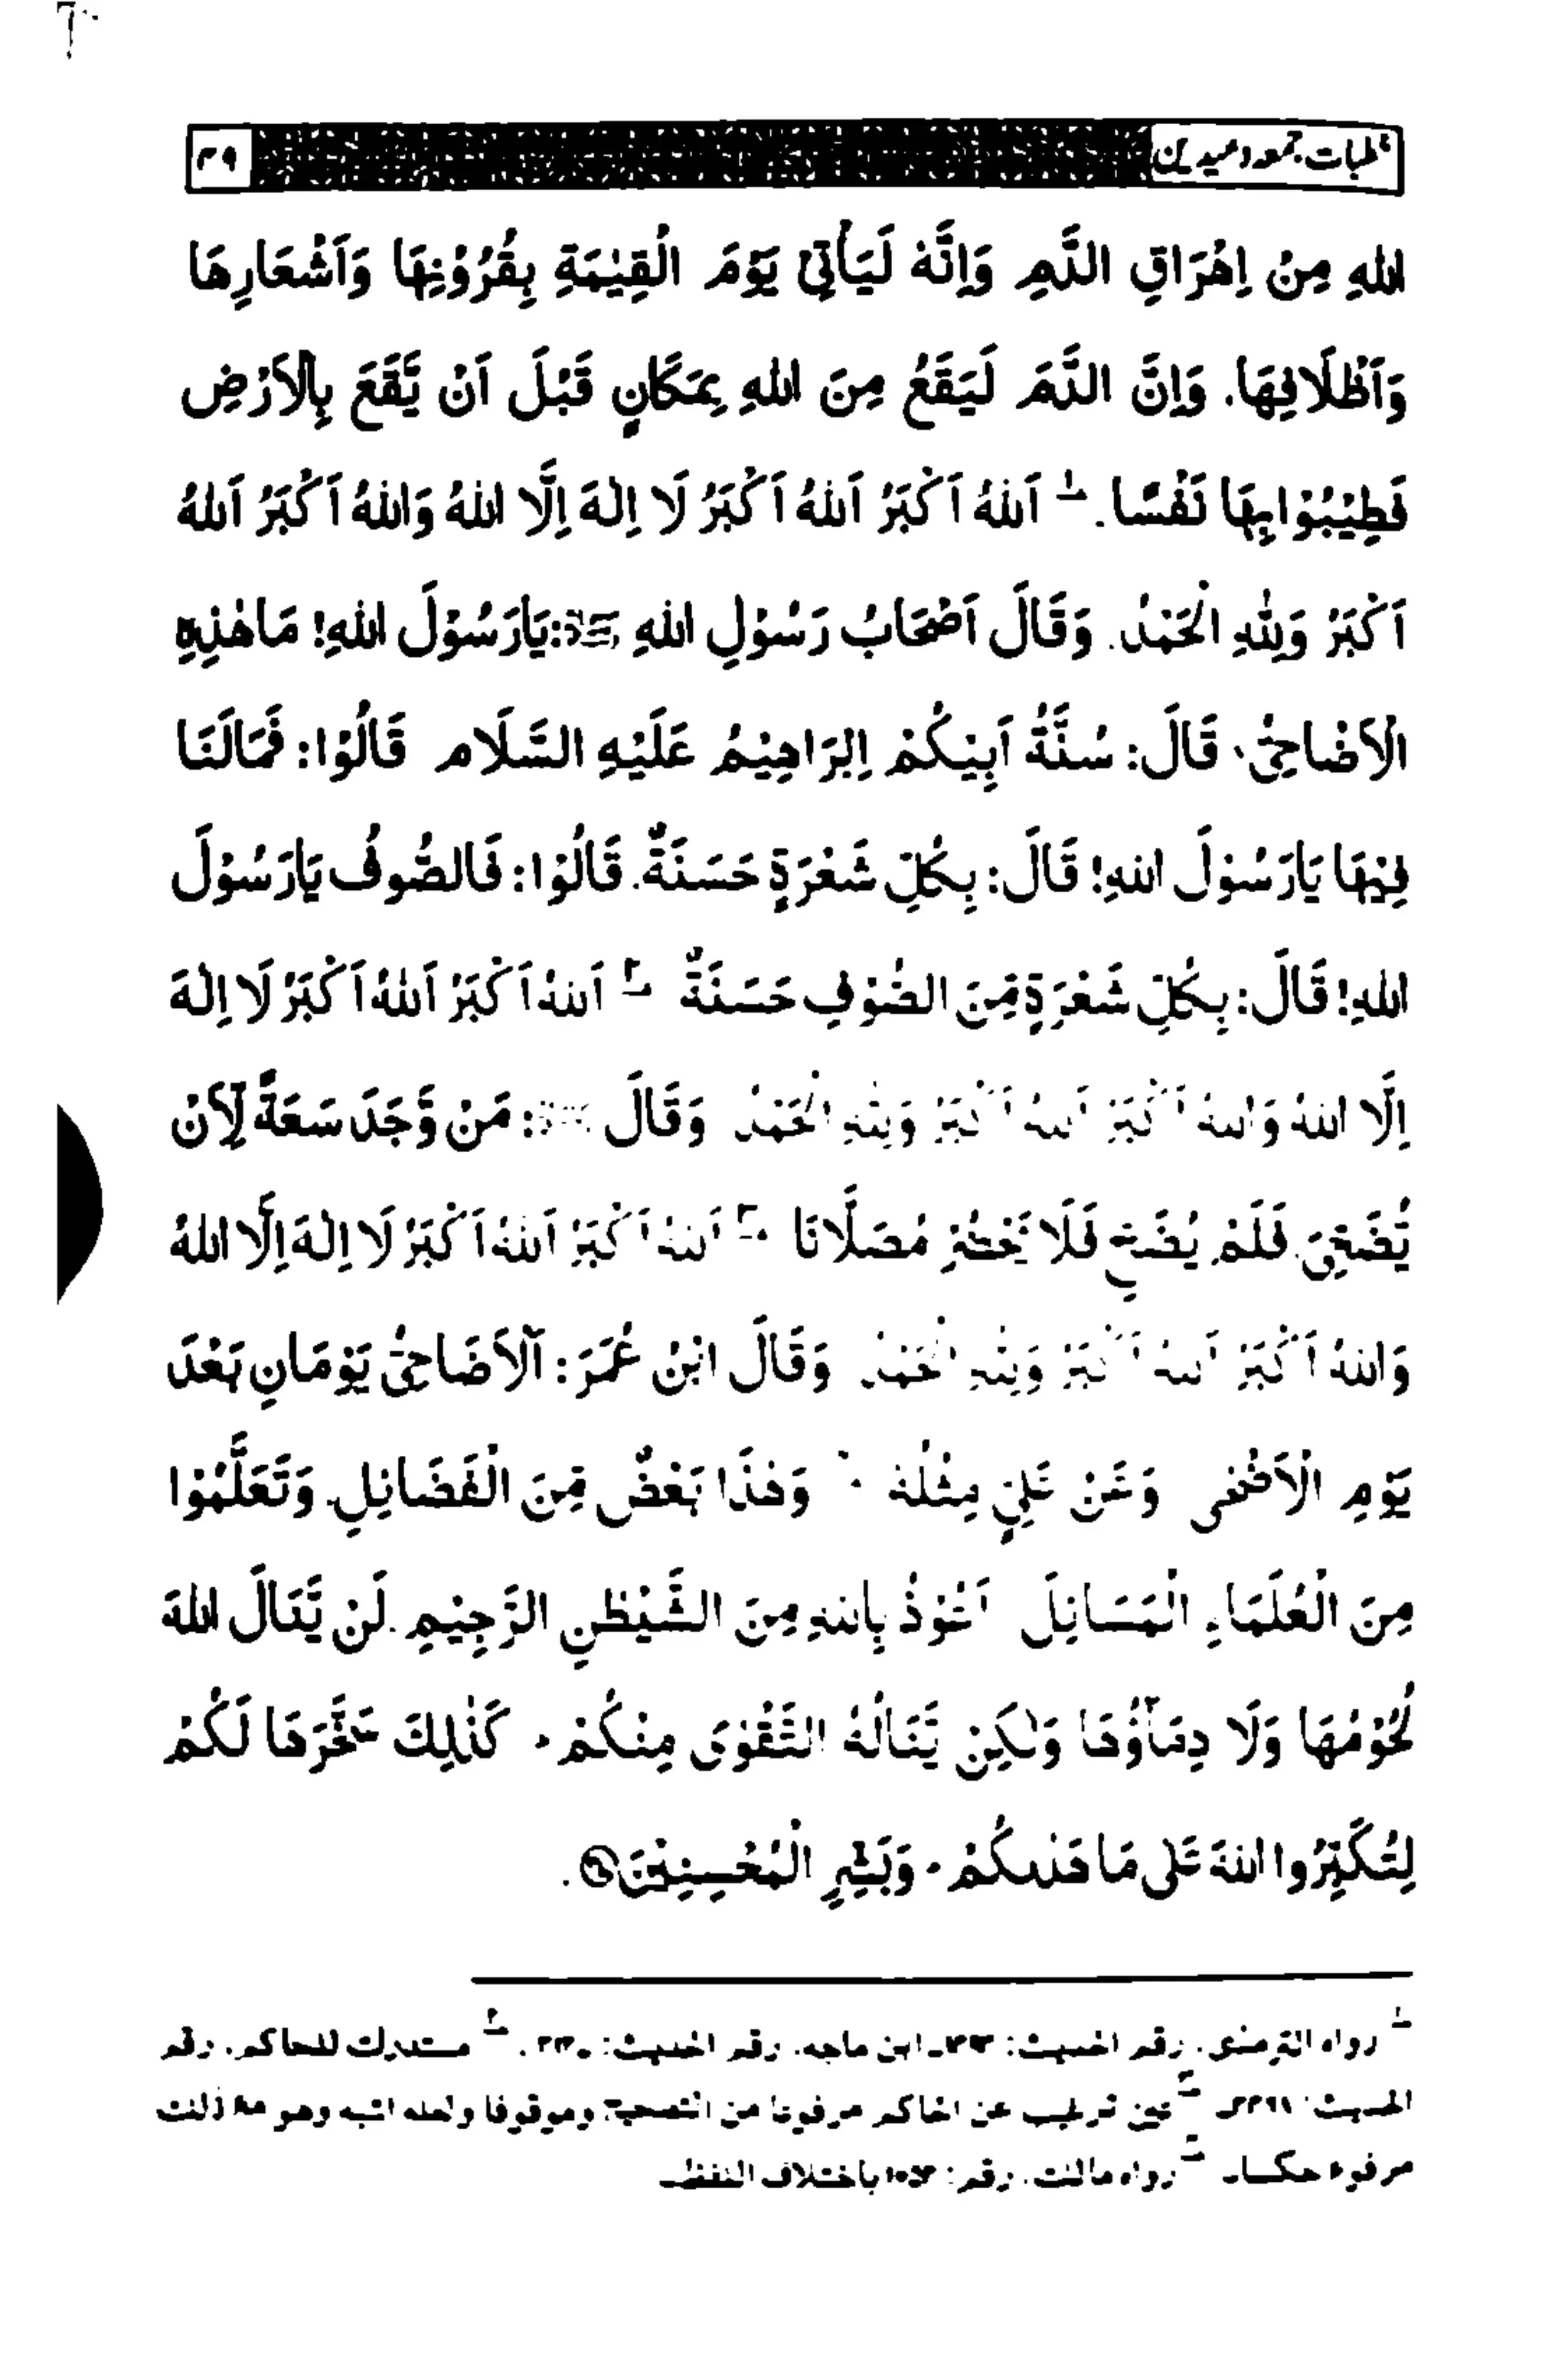 خطبات جمعہ و عیدین ۳۹
اللهِ مِنْ اِهْرَاقِ الدَّمِ وَاِنَّهٗ لَيَأْتِيْ يَوْمَ الْقِيٰمَةِ بِقُرُوْنِهَا وَاَشْعَارِهَا
وَاَظْلَافِهَا. وَاِنَّ الدَّمَ لَيَقَعُ مِنَ اللهِ بِمَكَانٍ قَبْلَ اَنْ يَّقَعَ بِالْاَرْضِ
فَطِيْبُوْا بِهَا نَفْسًا. اَللهُ اَكْبَرُ اَللهُ اَكْبَرُ لَا اِلٰهَ اِلَّا اللهُ وَاللهُ اَكْبَرُ اَللهُ
اَكْبَرُ وَلِلّٰهِ الْحَمْدُ. وَقَالَ اَصْحَابُ رَسُوْلِ اللهِ ﷺ: يَارَسُوْلَ اللهِ! مَا هٰذِهِ
الْاَضَاحِيُّ، قَالَ: سُنَّةُ اَبِيْكُمْ اِبْرَاهِيْمُ عَلَيْهِ السَّلَام قَالُوْا: فَمَا لَنَا
فِيْهَا يَارَسُوْلَ اللهِ! قَالَ: بِكُلِّ شَعْرَةٍ حَسَنَةٌ. قَالُوْا: فَالصُّوفُ يَارَسُوْلَ
اللهِ! قَالَ: بِكُلِّ شَعْرَةٍ مِّنَ الصُّوْفِ حَسَنَةٌ ۲ اَللهُ اَكْبَرُ اَللهُ اَكْبَرُ لَا اِلٰهَ
اِلَّا اللهُ وَاللهُ اَكْبَرُ اَللهُ اَكْبَرُ وَلِلّٰهِ الْحَمْدُ وَقَالَ ﷺ: مَنْ وَّجَدَ سَعَةً لِاَنْ
يُّضَحِّيَ فَلَمْ يُضَحِّ فَلَا يَحْضُرْ مُصَلَّانَا ۳ اَللهُ اَكْبَرُ اَللهُ اَكْبَرُ لَا اِلٰهَ اِلَّا اللهُ
وَاللهُ اَكْبَرُ اَللهُ اَكْبَرُ وَلِلّٰهِ الْحَمْدُ وَقَالَ ابْنُ عُمَرَ: اَلْاَضَاحِيُّ يَوْمَانِ بَعْدَ
يَوْمِ الْاَضْحٰى وَعَنْ عَلِيٍّ مِثْلُهٗ وَهٰذَا بَعْضٌ مِّنَ الْفَضَائِلِ. وَتَعَلَّمُوْا
مِنَ الْعُلَمَاءِ الْمَسَائِلَ اَعُوْذُ بِاللهِ مِنَ الشَّيْطٰنِ الرَّجِيْمِ. لَنْ يَّنَالَ اللهَ
لُحُوْمُهَا وَلَا دِمَآؤُهَا وَلٰكِنْ يَّنَالُهُ التَّقْوٰى مِنْكُمْ۰ كَذٰلِكَ سَخَّرَهَا لَكُمْ
لِتُكَبِّرُوا اللهَ عَلٰى مَا هَدٰىكُمْ۰ وَبَشِّرِ الْمُحْسِنِيْنَ.
رواه الترمذي. رقم الحديث: ابن ماجه. رقم الحديث: مستدرك للحاكم. رقم
الحديث: عين ترغيب عن الحاكم مرفوعا من التصحيح وموقوفا ولعله اشبه وهو مع ذلك
مرفوع حكما۔ رواه مالك. رقم: ۱۰۵۲ باختلاف اللفظ۔